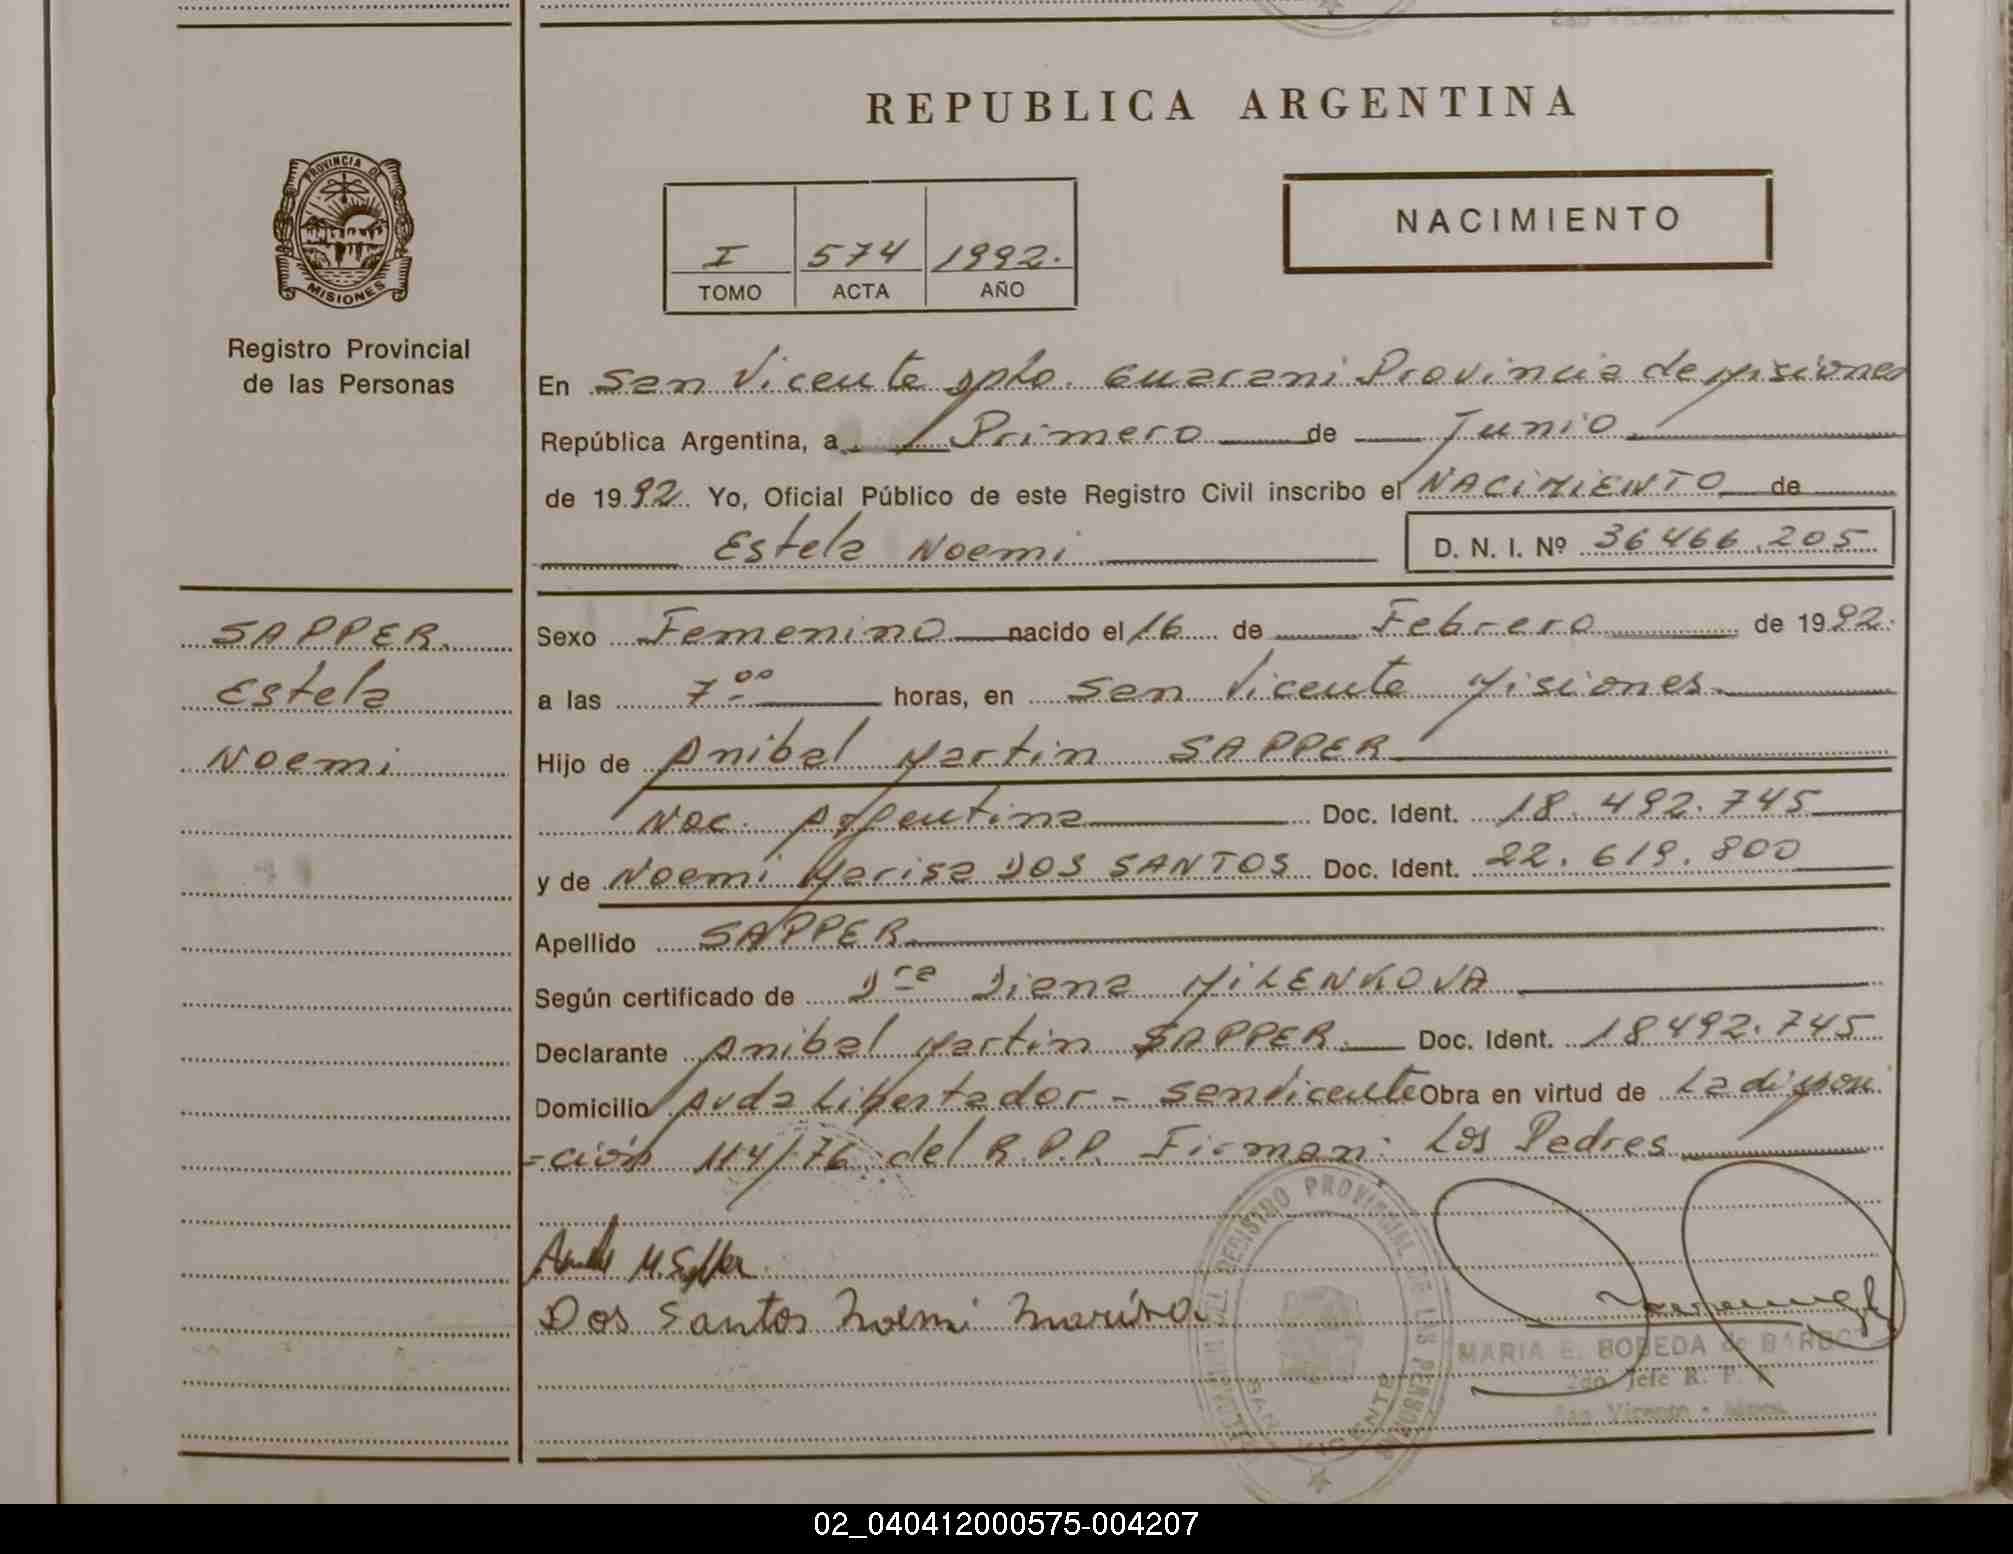 REPUBLICA ARGENTINA
PROVINCIA DE
MISIONES
Registro Provincial
de las Personas
NACIMIENTO
I 574 1992.
TOMO ACTA AÑO
En San Vicente Dpto. Guarani Provincia de Misiones
República Argentina, a Primero de Junio
de 1992. Yo, Oficial Público de este Registro Civil inscribo el NACIMIENTO de
Estela Noemi D. N. I. Nº 36466.205
SAPPER.
Estela
Noemi
Sexo Femenino nacido el 16 de Febrero de 1992.
a las 7 00 horas, en San Vicente Misiones.
Hijo de Anibal Martin SAPPER
Nac. Argentina Doc. Ident. 18.492.745
y de Noemi Marisa DOS SANTOS Doc. Ident. 22.619.800
Apellido SAPPER
Según certificado de Dra Diana MILENKOVA
Declarante Anibal Martin SAPPER. Doc. Ident. 18492.745
Domicilio Avda Libertador - San Vicente Obra en virtud de La disposi
=ción 114/76 del R.P.P. Firman: Los Padres
Anibal M. Sapper
Dos Santos Noemi Marisa
REGISTRO PROVINCIAL DE LAS PERSONAS
SAN VICENTE
MARIA E. BOBEDA de
2do. Jefe R. P.
San Vicente - Mnes.
02_040412000575-004207